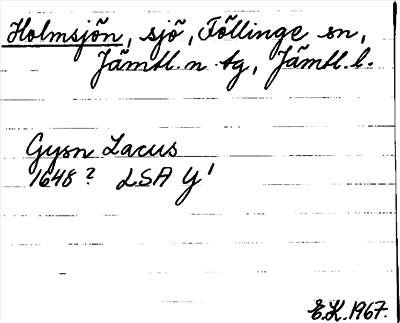 Holmsjön, sjö, Föllinge sn,
Jämtl. n. tg, Jämtl. l.
Gysn Lacus
1648? LSA Y¹
E.K. 1967.